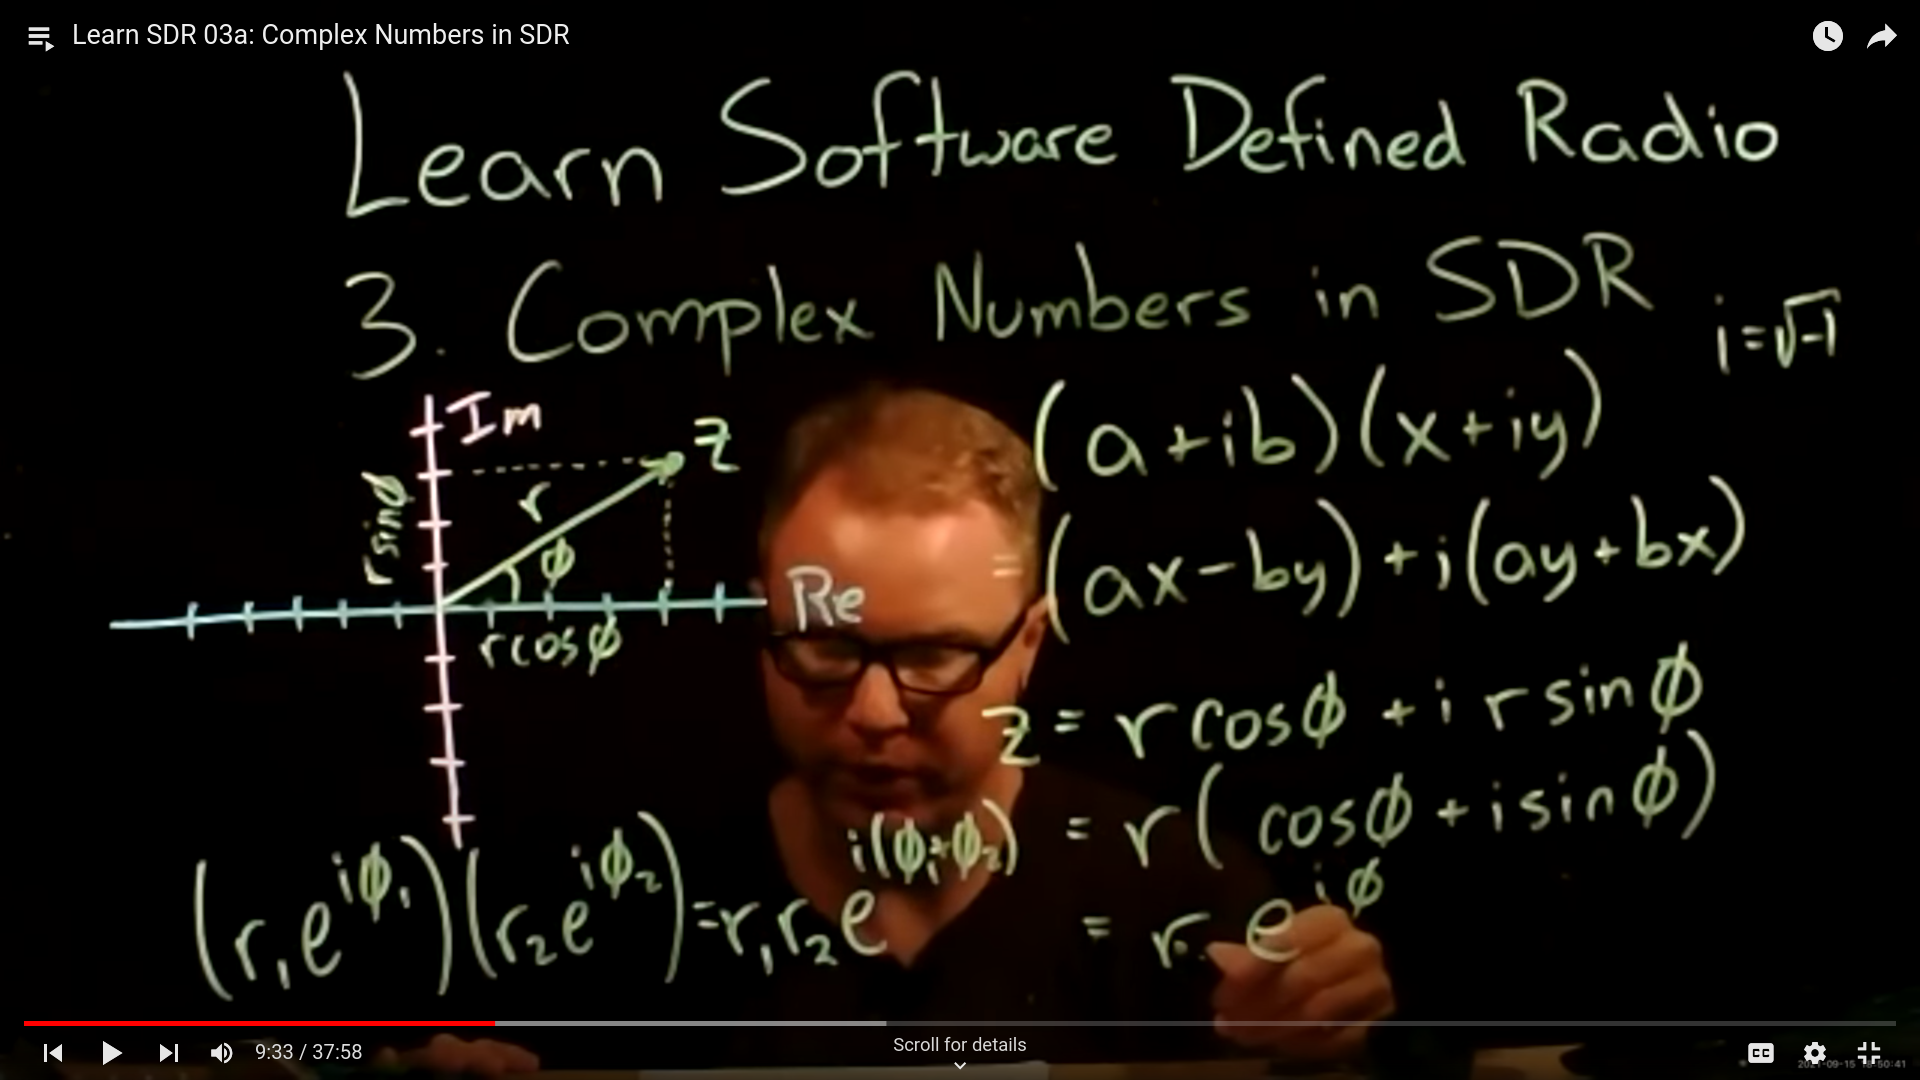 Learn SDR 03a: Complex Numbers in SDR
Learn Software Defined Radio
3. Complex Numbers in SDR
i=√-1
Im
z
r sinϕ
r
ϕ
Re
r cosϕ
(a+ib)(x+iy)
=(ax-by)+i(ay+bx)
z = r cosϕ + i r sinϕ
= r( cosϕ + i sinϕ)
= r e^iϕ
(r₁e^iϕ₁)(r₂e^iϕ₂)=r₁r₂e^i(ϕ₁+ϕ₂)
9:33 / 37:58
Scroll for details
CC
2021-09-15 18:50:41